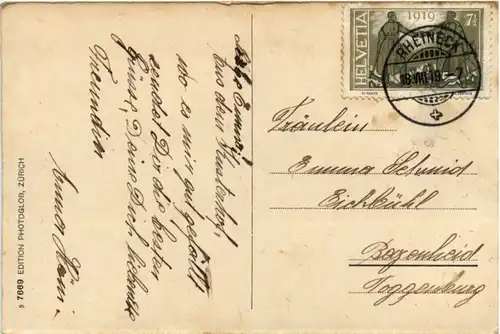 Liebe Emma!
Aus dem
wo es mir gut gefällt
sendet Dir die besten
Grüsse, Deine Dich liebende
Freundin
Anna
S 7669 EDITION PHOTOGLOB, ZÜRICH
HELVETIA
1919
7½
RHEINECK
18.VIII.19.-7
Fräulein
Emma Schmid
Eichbühl
Bazenheid
Toggenburg